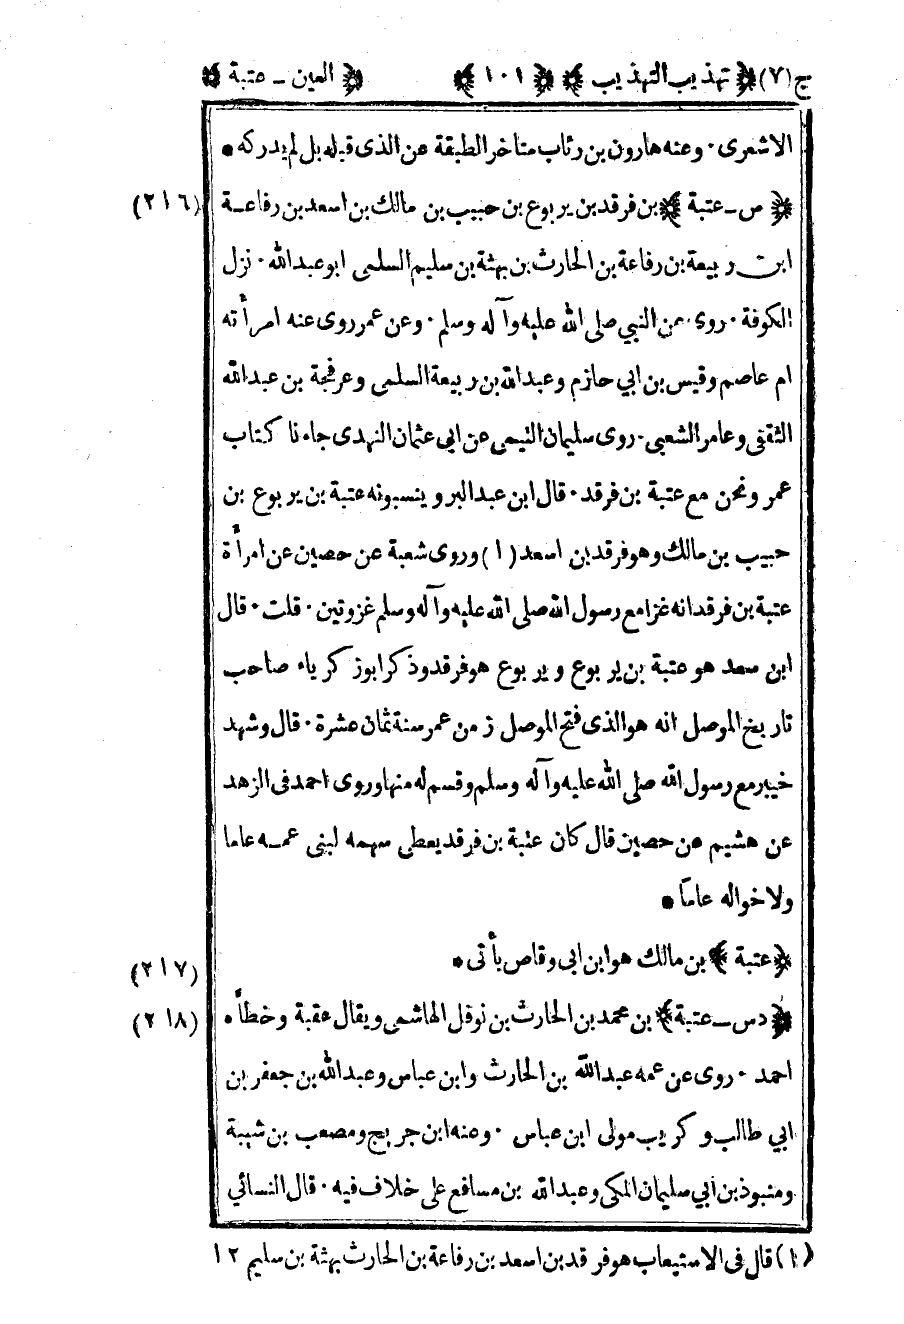 ج(٧) ﴿ تهذيب التهذيب ﴾ ﴿ ١٠١ ﴾ ﴿ العين ــ عتبة ﴾
الاشعرى · وعنه هارون بن رئاب متاخر الطبقة عن الذى قبله بل لم يدركه ●
(٢١٦) ﴿ س ــ عتبة ﴾ بن فرقد بن يربوع بن حبيب بن مالك بن اسعد بن رفاعة
ابن ربيعة بن رفاعة بن الحارث بن بهثة بن سليم السلمى ابو عبدالله · نزل
الكوفة · روى عن النبي صلى الله عليه وآله وسلم · وعن عمر روى عنه امرأته
ام عاصم وقيس بن ابي حازم وعبدالله بن ربيعة السلمى وعرفجة بن عبدالله
الثقفى وعامر الشعبي · روى سليمان التيمى عن ابى عثمان النهدى جاءنا كتاب
عمر ونحن مع عتبة بن فرقد · قال ابن عبدالبر و ينسبونه عتبة بن يربوع بن
حبيب بن مالك وهو فرقد بن اسعد (١) وروى شعبة عن حصين عن امرأة
عتبة بن فرقد انه غزا مع رسول الله صلى الله عليه وآله وسلم غزوتين · قلت · قال
ابن سعد هو عتبة بن يربوع و يربوع هو فرقد وذكر ابو زكرياء صاحب
تاريخ الموصل انه هو الذى فتح الموصل زمن عمر سنة ثمان عشرة · قال وشهد
خيبر مع رسول الله صلى الله عليه وآله وسلم وقسم له منها وروى احمد فى الزهد
عن هشيم عن حصين قال كان عتبة بن فرقد يعطى سهمه لبنى عمه عاما
ولاخواله عاماً ●
(٢١٧) ﴿ عتبة ﴾ بن مالك هو ابن ابى وقاص يأتى ●
(٢١٨) ﴿ دس ــ عتبة ﴾ بن محمد بن الحارث بن نوفل الهاشمى ويقال عقبة وخطأه
احمد · روى عن عمه عبدالله بن الحارث وابن عباس وعبدالله بن جعفر بن
ابي طالب و كريب مولى ابن عباس · وعنه ابن جريج ومصعب بن شيبة
ومنبوذ بن ابي سليمان المكى وعبدالله بن مسافع على خلاف فيه · قال النسائي
(١) قال فى الاستيعاب هو فرقد بن اسعد بن رفاعة بن الحارث بهثة بن سليم ١٢